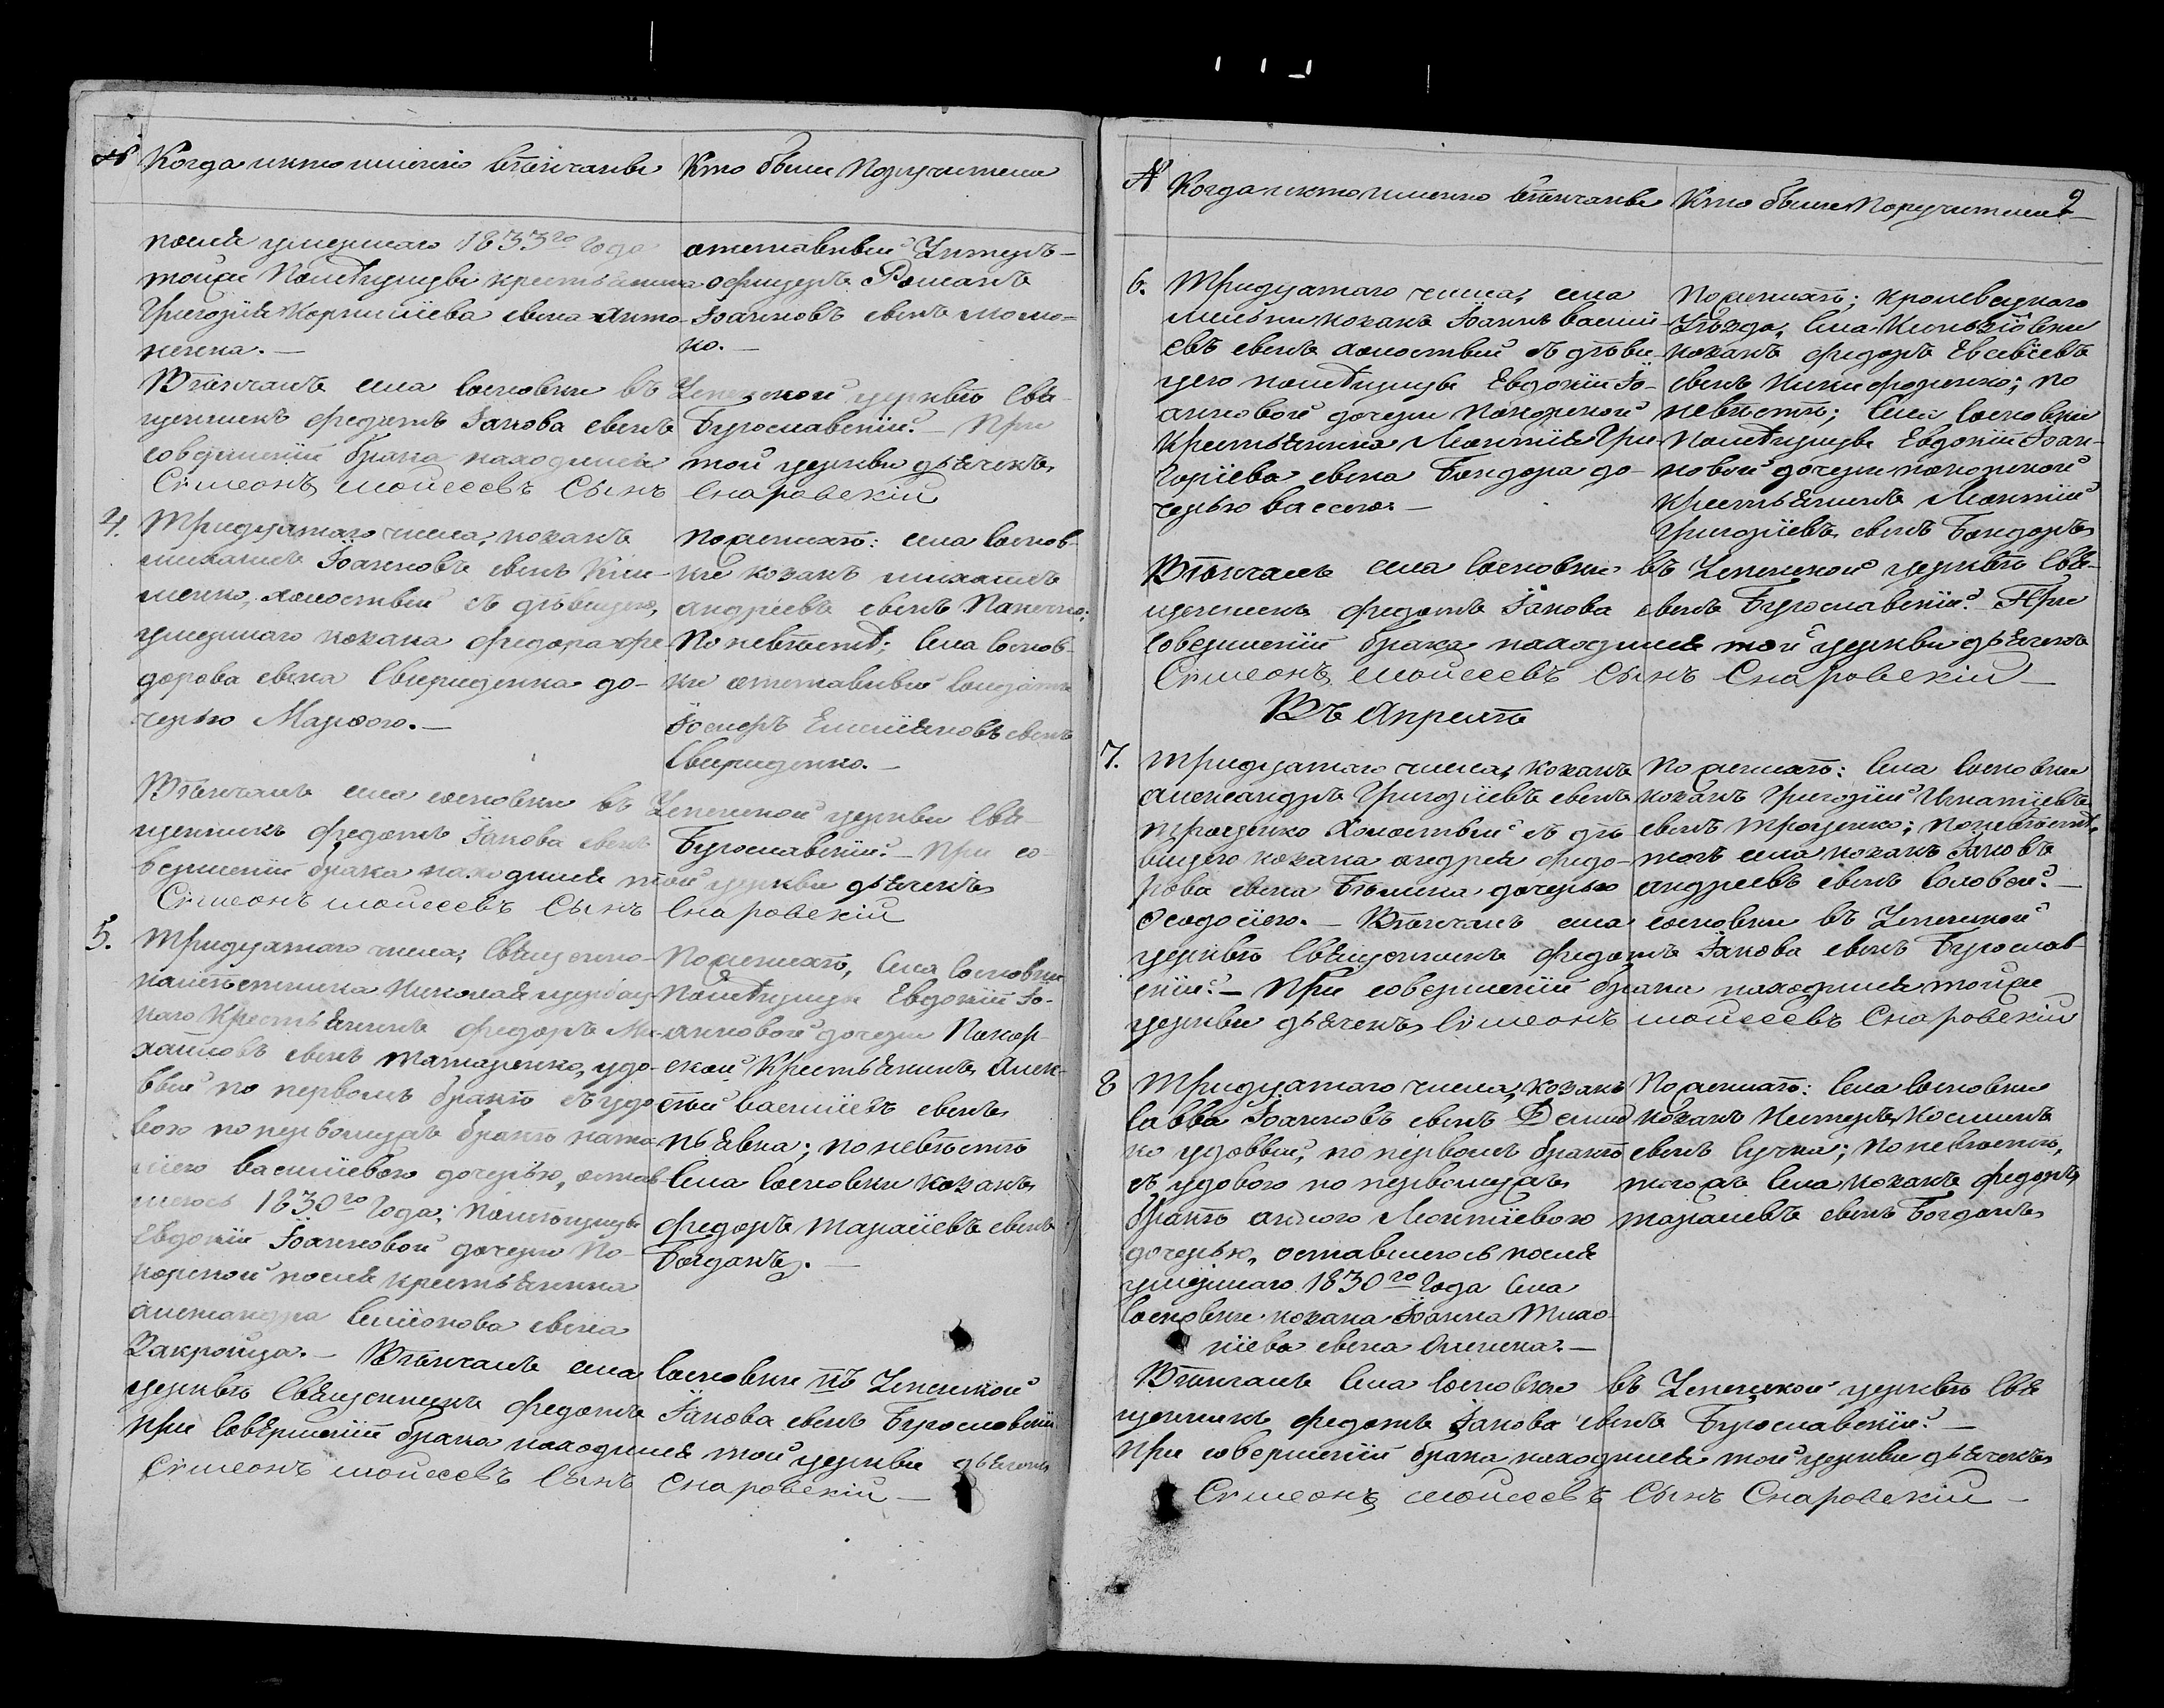 № Когда и кто именно венчаны
Кто были Поручители
после умершаго 1833го года
тойже Помѣщицы крестьянина
Григорія Корнилиева сына Анто-
ненка.—
отставный Унтеръ-
офицеръ Романъ
Іоанновъ сынъ
ко.—
Вѣнчалъ села Сосновки въ Успенской церквѣ Свя-
щенникъ Федотъ Іакова сынъ Бугославскій.— При
совершеніи брака находился той церкви дьячекъ
Сімеонъ Моисеевъ Сынъ Снаровскій
4. Тридцатаго числа, козакъ
Михаилъ Іоанновъ сынъ Кли-
менко, холостый съ дѣвицею,
умершаго козака Федора Фе-
дорова сына Свириденка до-
черью Марфою.—
По женихѣ: села Соснов-
ки козакъ Михаилъ
Андріевъ сынъ
По невѣстѣ: Села Соснов-
ки отставный Солдатъ
Іосифъ Емиліановъ сынъ
Свириденко.—
Вѣнчалъ села Сосновки въ Успенской церкви Свя-
щенникъ Федотъ Іакова сынъ Бугославскій.— При со-
вершеніи брака находился той церкви дьячекъ
Сімеонъ Моисеевъ Сынъ Снаровскій
5. Тридцатаго числа, Священно-
Николая
каго Крестьянинъ Федоръ Ми-
хайловъ сынъ Татаренко, удо-
вый по первомъ бракѣ съ удо-
вою по первомужъ бракѣ Ната-
ліею Василіевою дочерью, остав-
шеюсь 1830го Года; Помѣщицы
Евдокіи Іоанновой дочери По-
корской послѣ крестьянина
Александра Симіонова сына
Закройца.—
По женихѣ, Села Сосновки
Помѣщицы Евдокіи Іо-
анновой дочери Покор-
ской Крестьянинъ Алек-
сѣй Василіевъ сынъ
Пьявка; по невѣстѣ
Села Сосновки козакъ
Федоръ Тарасіевъ сынъ
Богданъ.—
Вѣнчалъ села Сосновки въ Успенской
церквѣ Священникъ Федотъ Іакова сынъ Бугославскій.
При Совершеніи брака находился той церкви дьячекъ
Сімеонъ Моисеевъ Сынъ Снаровскій —
№ Когда и кто именно венчаны
Кто были Поручители
9
6. Тридцатаго числа, села
козакъ Іоаннъ Василі-
евъ сынъ холостый съ дѣви-
цею помѣщицы Евдокіи Іо-
анновой дочери Покорской
Крестьянина Леонтія Гри-
горіева сына Бондора до-
черью Вассою.—
По женихѣ; Кролевецкого
Уѣзда, Села
козакъ Федоръ Евсѣвіевъ
сынъ Никифоренко; по
невѣстѣ; Села Сосновки
Помѣщицы Евдокіи Іоан-
новой дочери Покорской
Крестьянинъ Леонтій
Григоріевъ сынъ Бондоръ
Вѣнчалъ села Сосновки въ Успенской церквѣ Свя-
щенникъ Федотъ Іакова сынъ Бугославскій.— При
Совершеніи брака находился той церкви дьячекъ
Сімеонъ Моисеевъ Сынъ Снаровскій —
Въ Апрелѣ
7. Тридцатаго числа, козакъ
Александръ Григоріевъ сынъ
Троценко Холостый съ дѣ-
вицею козака Андрея Федо-
рова сына дочерью
Феодосіею.—
По женихѣ: Села Сосновки
козакъ Григорій Игнатіевъ
сынъ Троценко; по невѣстѣ,
тогожъ села козакъ Іаковъ
Андреевъ сынъ Соловой.—
Вѣнчалъ села Сосновки въ Успенской
церквѣ Священникъ Федотъ Іакова сынъ Бугослав-
скій.— При совершеніи брака находился тойже
церкви дьячекъ Сімеонъ Моисеевъ Снаровскій
8 Тридцатаго числа, козакъ
Савва Іоанновъ сынъ
ко удовый, по первомъ бракѣ
съ удовою по первомужъ
бракѣ Анною Леонтіевою
дочерью, оставшеюсь послѣ
умершаго 1830го Года Села
Сосновки козака Іоанна
сына
По женихѣ: Села Сосновки
козакъ
сынъ Сучка; по невѣстѣ,
тогожъ Села козакъ Федоръ
Тарасіевъ сынъ Богданъ
Вѣнчалъ Села Сосновки въ Успенской церквѣ Свя-
щенникъ Федотъ Іакова сынъ Бугославскій.—
При совершеніи брака находился той церкви дьячекъ
Сімеонъ Моисеевъ Сынъ Снаровскій —